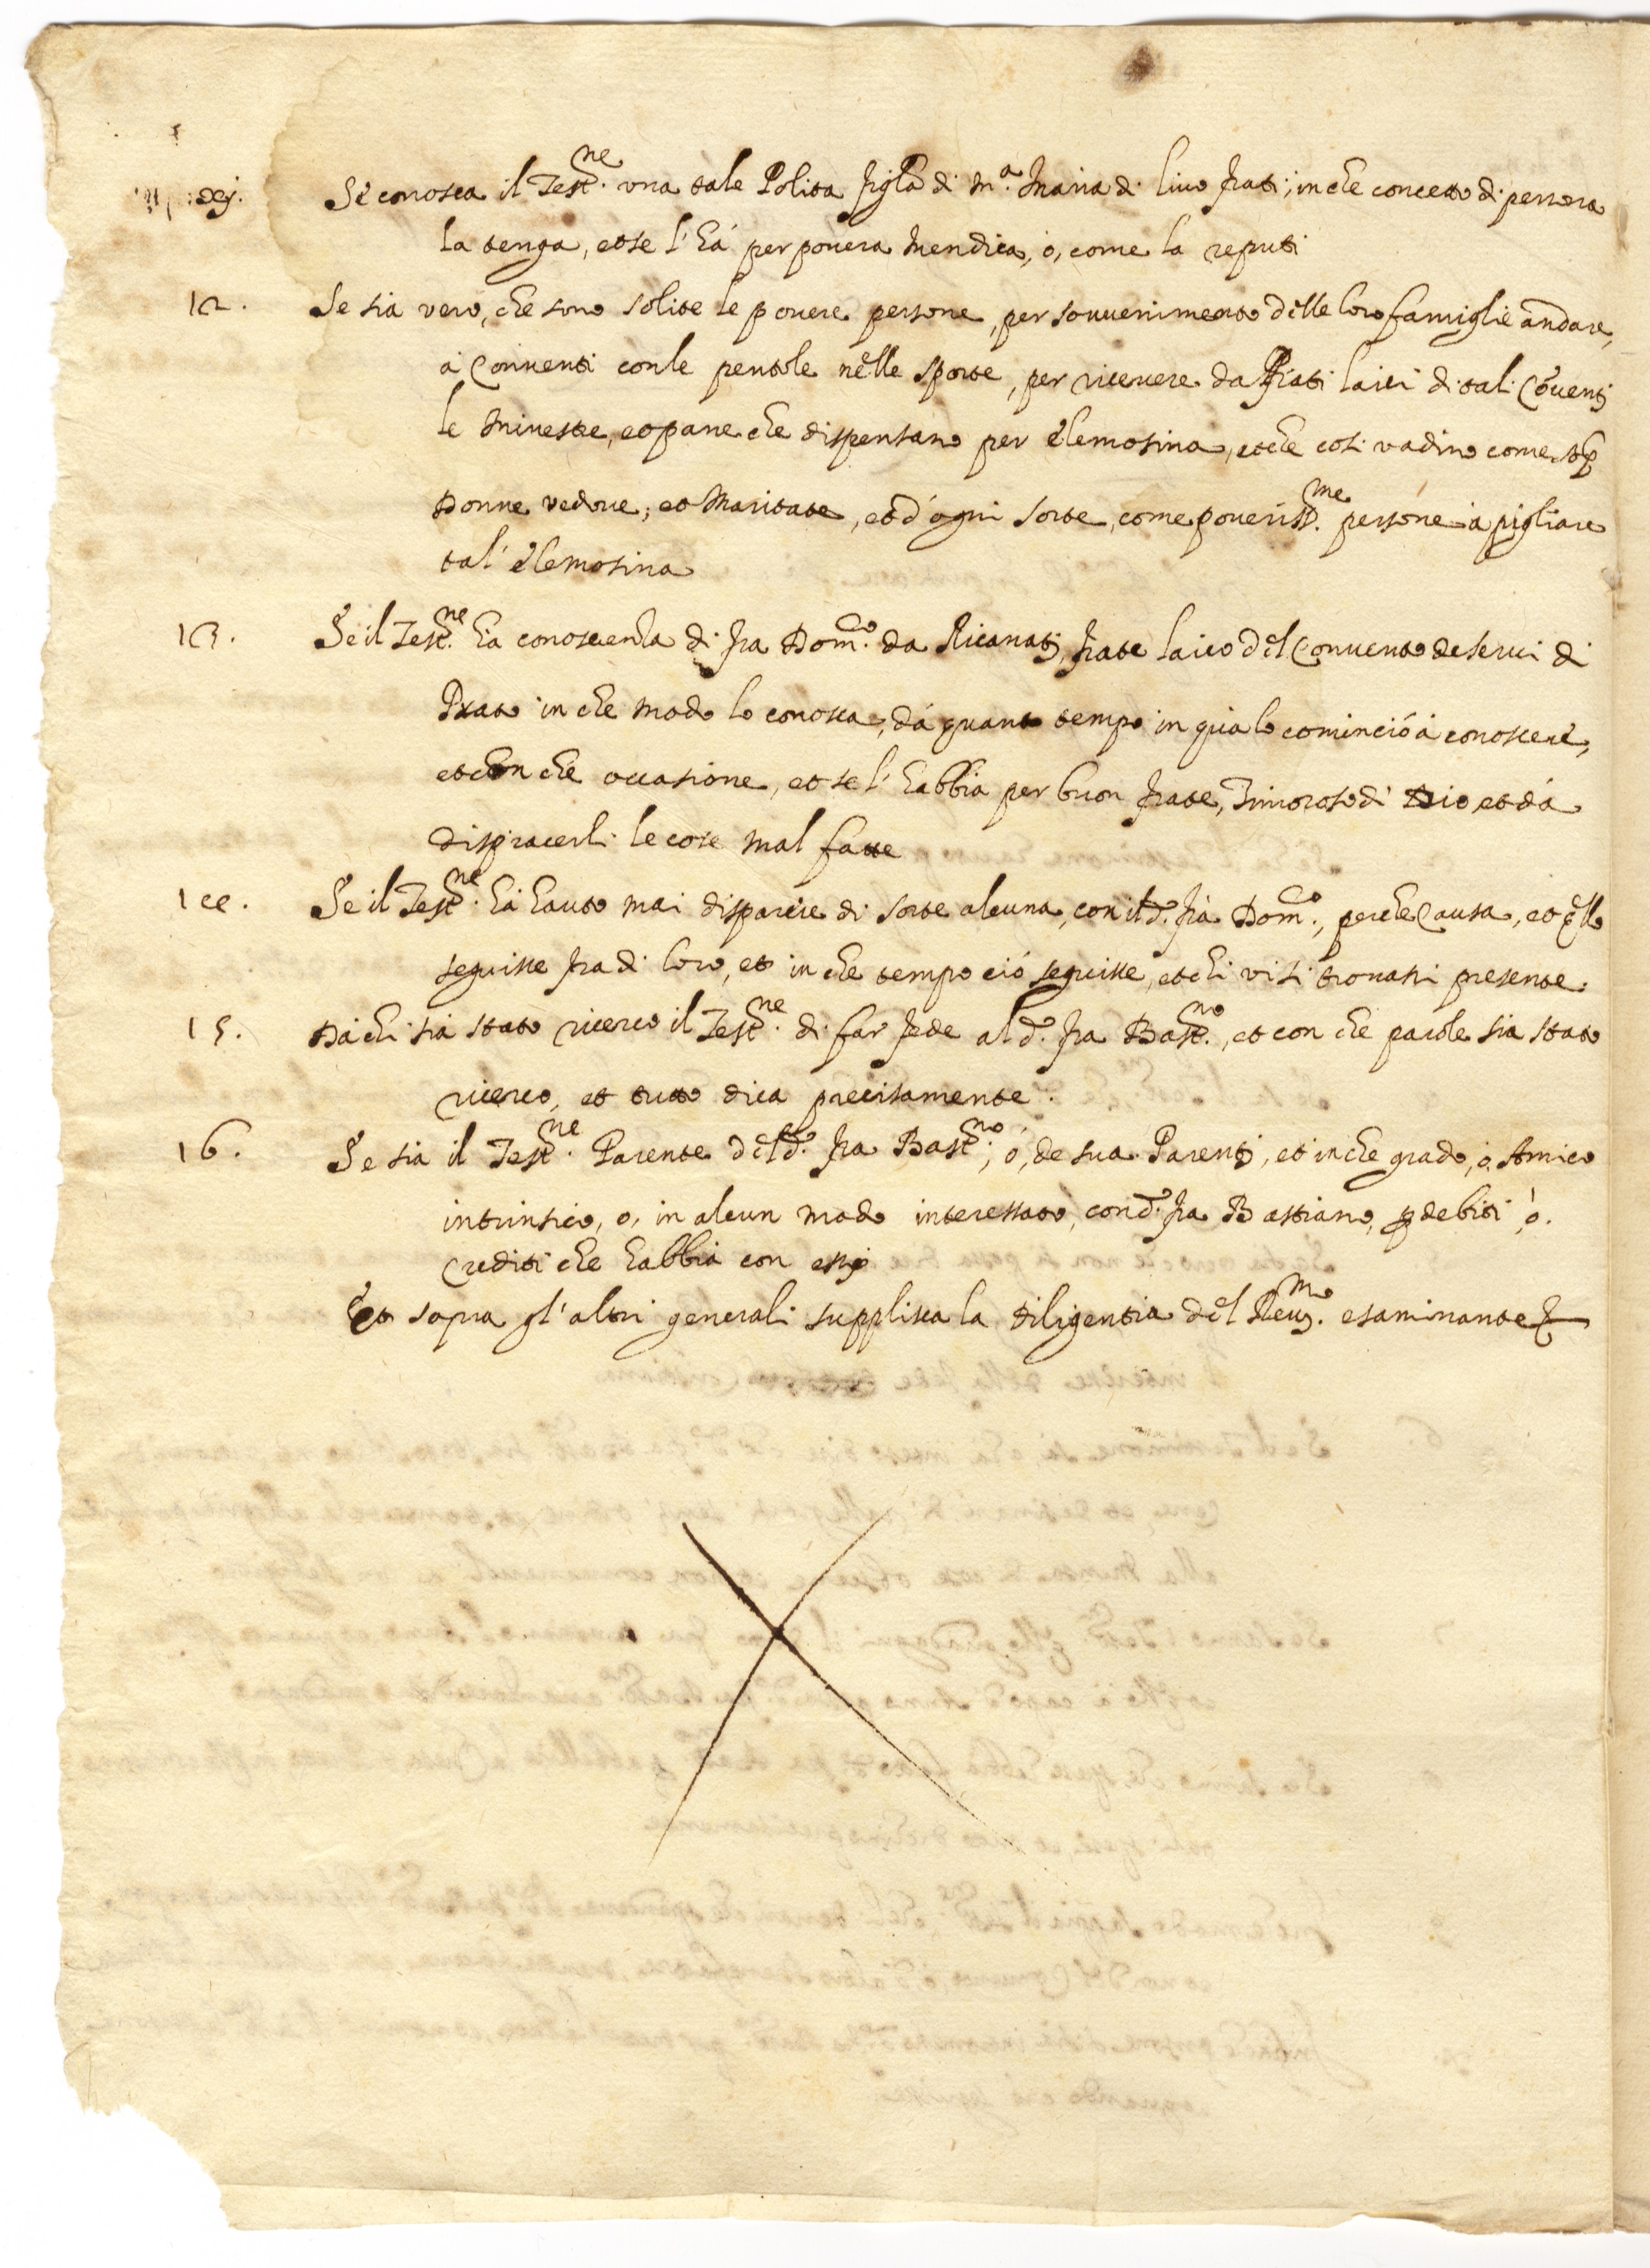 xj. Se conosca il Test.ne una tale Polita figla di m.a Maria di Livo frati; in che concetto di persona
la tenga, et se l'hà per povera Mendica, ò, come la reputi
12. Se sia vero, che sono solite le povere persone, per souuenimento delle loro famiglie andare,
à Conventi con le pentole nelle sporte, per ricevere da frati laici di tali Cõventj
le Minestre, et pane che dispensano per elemosina, et che cosi vadino come
Donne vedove, et Maritate, et d'ogni sorte, come poveriss.me persone à pigliare
tal' elemosina
13. Se il Test.ne hà conoscenza di fra Dom.co da Ricanatj, frate laico del Convento de servi di
Prato in che modo lo conosca, dà quanto tempo in quà lo cominciò à conoscere,
et con che occasione, et se l'habbia per buon frate, Timoroso di Dio et dà
dispiacerli le cose mal fatte
14. Se il Test.ne hà hauto mai disparere di sorte alcuna, con il d.o frà Dom.co, per che Causa, et
seguisse fra di loro, et in che tempo ciò seguisse, et chi vi si trovassi presente.
15. Dà chi sia stato ricerco il Test.ne di far fede al d.o fra Bast.no, et con che parole sia stato
ricerco, et tutto dica precisamente.
16. Se sia il Test.ne Parente del d.o fra Bast.no; ò, de sua Parentj, et in che grado, ò Amico
intrinsico, o, in alcun modo interessato, con d.o fra Bastiano, p debiti ò.
Crediti che habbia con
Et sopra gl'altri generali supplisca la diligentia del Reu.mo esaminante &